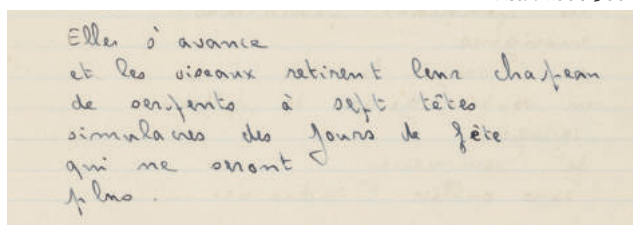 Elle s'avance
et les oiseaux retirent leur chapeau
de serpents à sept têtes
simulacres des jours de fête
qui ne seront
plus.